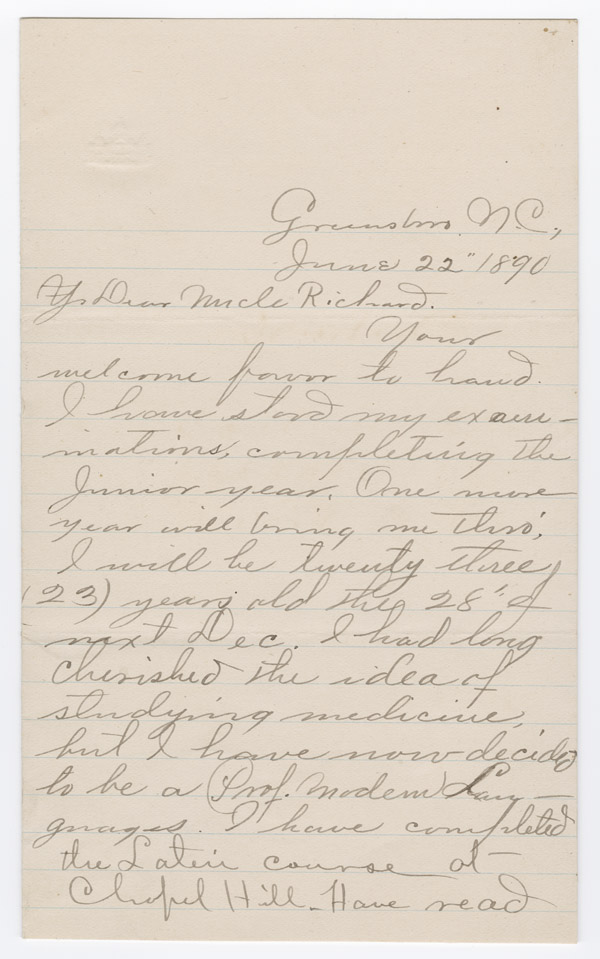 Greensboro. N.C.,
June 22" 1890
My Dear Uncle Richard.
Your
welcome favor to hand.
I have stood my exami-
nations, completing the
Junior year. One more
year will bring me thro'.
I will be twenty three
(23) years old the 28" of
next Dec. I had long
cherished the idea of
studying medicine,
but I have now decided
to be a (Prof. Modern Lan-
guages. I have completed
the Latin course at
Chapel Hill. Have read